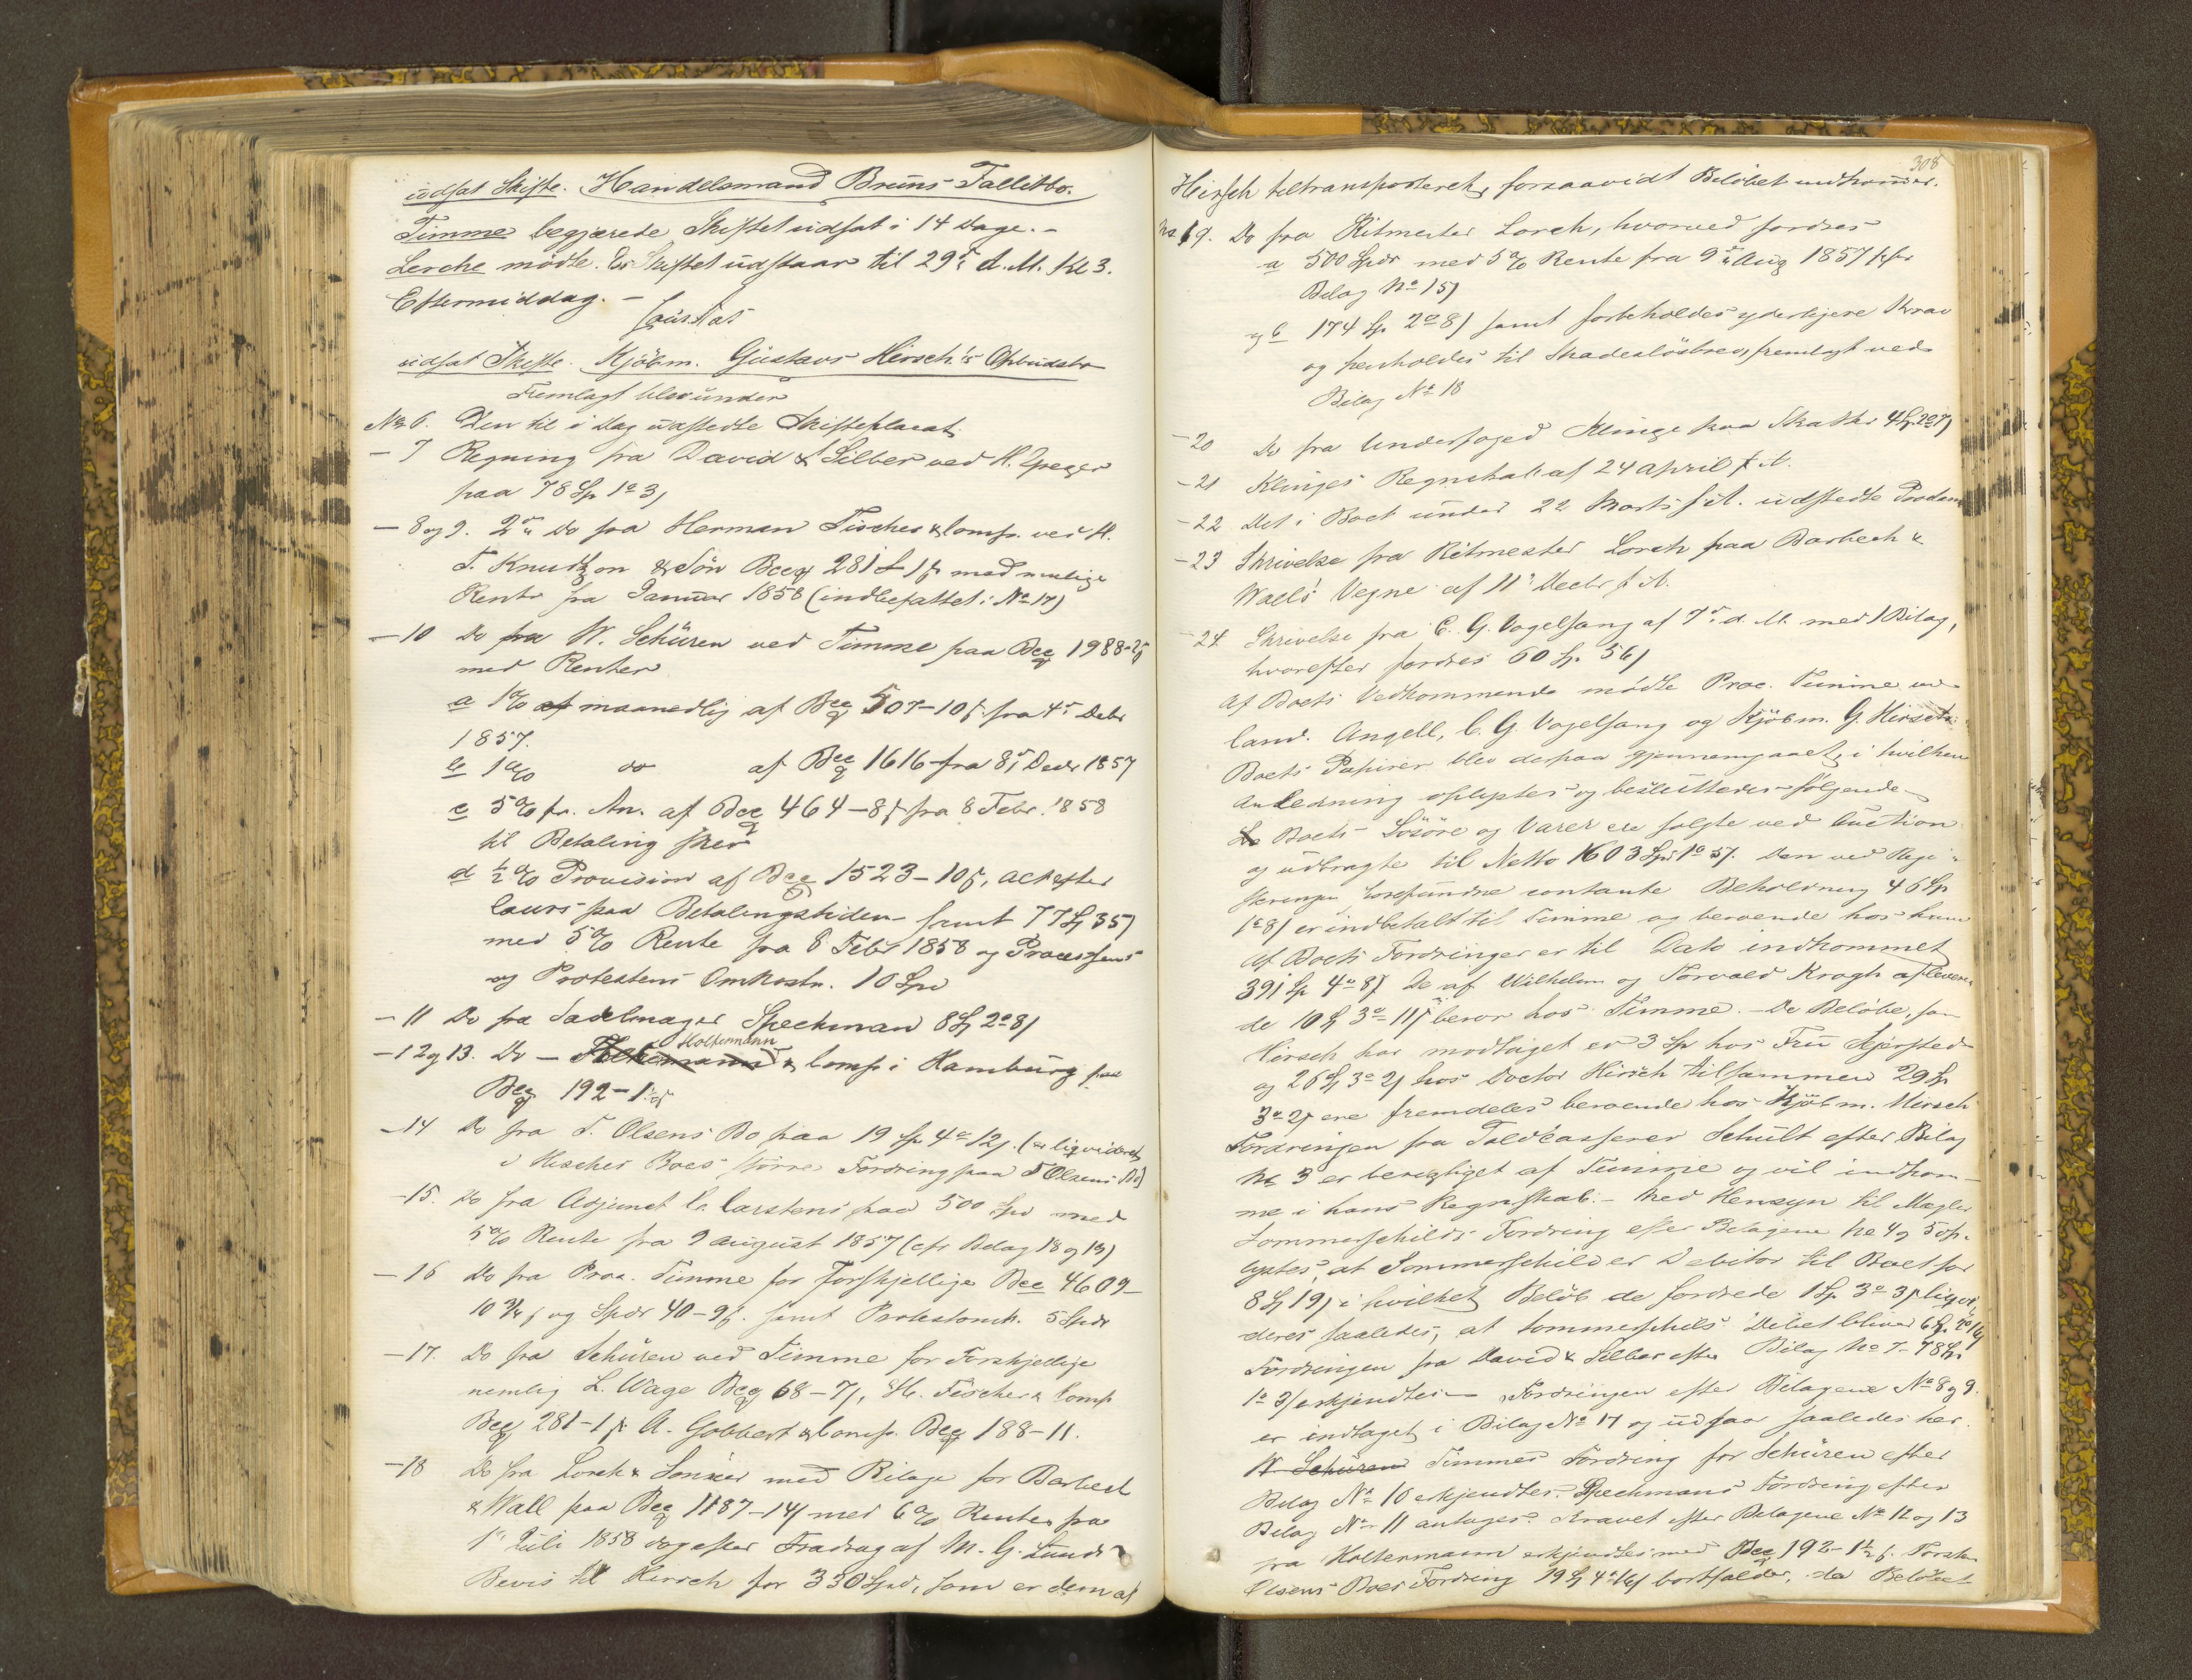 udsat Skifte. Handelsmand Bruns Fallitbo.
Timme begjærede Skiftet udsat i 14 Dage. -
Lerche mødte. Skiftet udstaar til 29de d. M. Kl 3.
Eftermiddag. -
udsat Skifte. Kjöbm. Gustavs Hirsch's Opbudsbo
Fremlagt blev under
No 6. Den til i Dag udstedte Skifteplacat
- 7 Regning fra David & Silber ved H.
paa 78 Sp 1o 3/
- 8 og 9. 2de Do fra Herman Fischer & Comp. ved H.
T. Knudtzon & Søn Bco 281 1 med
Rente fra Januar 1858 (indbefattet i No 17)
- 10 Do fra W. Schüren ved Timme paa Bco 1988
med Renter
a 1% af maanedlig af Bco 507-10 fra 4de Debr
1857.
b 1% do af Bco 1616 fra 8de Decbr 1857
c 5% pr. An. af Bco 464-8 fra 8 Febr. 1858
til Betaling skeer
d ½% Provision af Bco 1523-10, alt efter
Cours paa Betalingstiden samt 77 Sp 35/
med 5% Rente fra 8 Febr 1858 og Processens
og Protestens Omkostn. 10 Spd
- 11 Do fra Sadelmager Speckman 8 Sp 2o 8/
Holtermann
- 12 og 13. Do - & Comp i Hamburg paa
Bco 192-1½
- 14 Do fra T. Olsens Bo paa 19 Sp 4o 12/. (er liqvideret
i Hirsches Boes större Fordring paa T Olsens Bo)
- 15. Do fra Adjunct C. Carstens paa 500 Spd med
5% Rente fra 9 August 1857 (cfr Bilag 18 og 19)
- 16 Do fra Proc. Timme for Forskjellige Bco 4609-
10 ¾ og Spdr 40-9. samt Protestomk. 5 Spdr
- 17. Do fra Schüren ved Timme for Forskjellige
nemlig L. Wage Bco 68-7, H. Fischer & Comp
Bco 281-1 A. Gobbert & Comp. Bco 188-11.
- 18 Do fra Lorck & Sønner med Bilage for Barbeck
& Wall paa Bco 1187-14 med 6% Rente fra
1ste Juli 1858 dog efter Fradrag af M. G. Lunds
Bevis til Hirsch for 330 Spd, som er dem af
308
Hirsch tiltransporteret, forsaavidt Beløbet indkommer.
No 19. Do fra Ritmester Lorck, hvorved fordres
a 500 Spdr med 5% Rente fra 9de Aug 1857 cfr
Bilag No 15)
og b 174 Sp. 2o 8/ samt forbeholdes yderligere Krav
og henholdes til Skadesløsbrev, fremlagt ved
Bilag No 18
- 20 Do fra Underfoged Klinge paa Skatter 4 Sp. 2o 7/
- 21 Klinges Regnskab af 24 April f. A.
- 22 Det i Boet under 22 Marts f. A. udstedte Proclama
- 23 Skrivelse fra Ritmester Lorck paa Barbeck &
Walls Vegne af 11te Decbr f. A.
- 24 Skrivelse fra C. G. Vogelsang af 7de d. M. med 1 Bilag,
hvorefter fordres 60 Sp. 56/
Af Boets Vedkommende mødte Proc. Timme ved
Cand. Angell, C. G. Vogelsang og Kjøbm. G. Hirsch.
Boets Papirer blev derpaa gjennemgaaet, i hvilken
Anledning oplystes og besluttedes følgende
Boets Løsøre og Varer ere solgte ved Auction
og udbragte til Netto 1603 Spd 1o 5/. Den ved Regi-
streringen forefundne contante Beholdning 46 Sp
1o 8/ er indbetalt til Timme og beroende hos ham
Af Boets Fordringer er til Dato indkommet
391 Sp 4o 8/ De af Wilhelm og Torvald Krogh aflevere-
de 10 Sp 3o 11/ beror hos Timme. - De Beløbe, som
Hirsch har modtaget er 3 Sp hos Fru Kjersted
og 26 Sp 3o 2/ hos Doctor Hirsch tilsammen 29 Sp
3o 2/ ere fremdeles beroende hos Kjøbm. Hirsch
Fordringen fra Toldcasserer Schult efter Bilag
No 3 er berigtiget af Timme og vil indkom-
me i hans Regnskab. - Med Hensyn til Mægler
Sommerschilds Fordring efter Bilagene No 4 og 5 op-
lystes, at Sommerschild er Debitor til Boet for
8 Sp 19/ i hvilket Beløb de fordrede 1 Sp. 3o 3/ liqvi-
deres saaledes, at Sommerschilds Debet bliver 6 Sp. 2o 16/
Fordringen fra David & Silber efter Bilag No 7 - 78 Sp.
1o 3/ erkjendtes - Fordringen efter Bilagene No 8 og 9.
er indtaget i Bilag No 17 og udgaar saaledes her.
W Schüren Timmes Fordring for Schüren efter
Bilag No 10 erkjendtes. Speckmans Fordring efter
Bilag No 11 antages. Kravet efter Bilagene No 12 og 13
fra Holtermann erkjendtes med Bco 192-1½. Torsten
Olsens Boes Fordring 19 Sp 4o 16/ bortfalder, da Beløbet